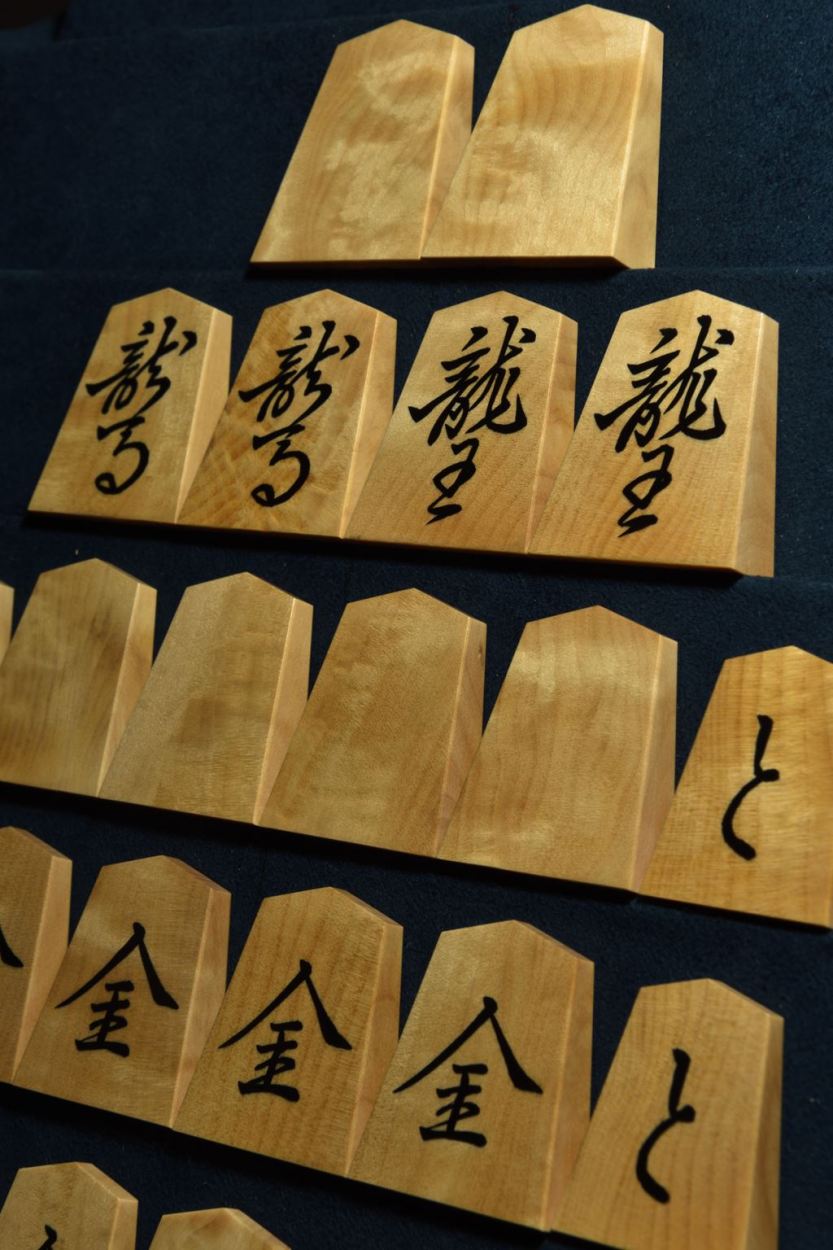 龍馬 龍馬 龍王 龍王
と
金 金 金 と